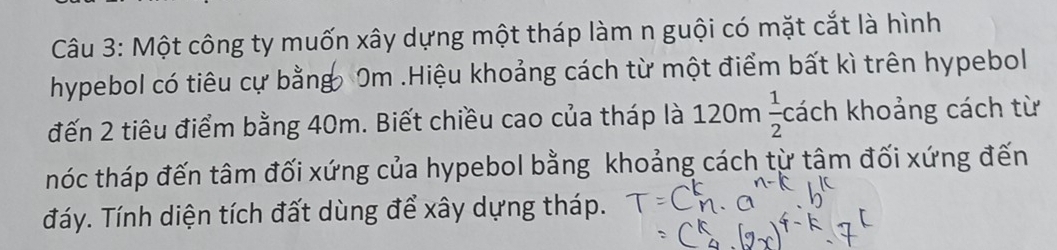 Câu 3: Một công ty muốn xây dựng một tháp làm n guội có mặt cắt là hình
hypebol có tiêu cự bằng 0m .Hiệu khoảng cách từ một điểm bất kì trên hypebol
đến 2 tiêu điểm bằng 40m. Biết chiều cao của tháp là 120m 1/2 cách khoảng cách từ
nóc tháp đến tâm đối xứng của hypebol bằng khoảng cách từ tâm đối xứng đến
đáy. Tính diện tích đất dùng để xây dựng tháp. T = C_n^k . a^{n-k} . b^k
= C_4^k . (2x)^{4-k} . 7^k